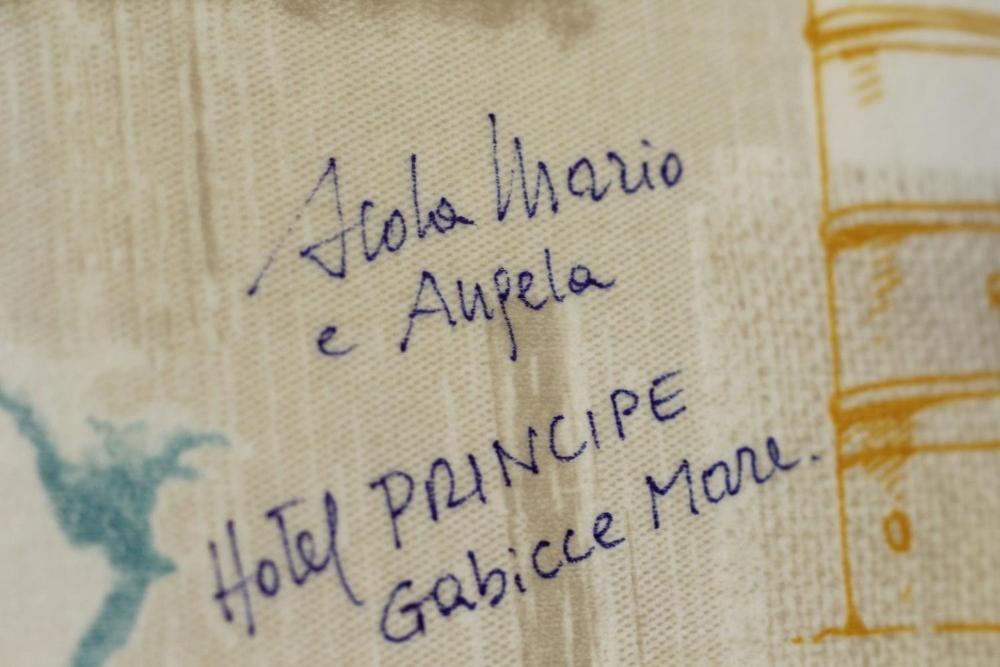 Mario
e Angela
Hotel PRINCIPE
Gabicce Mare.